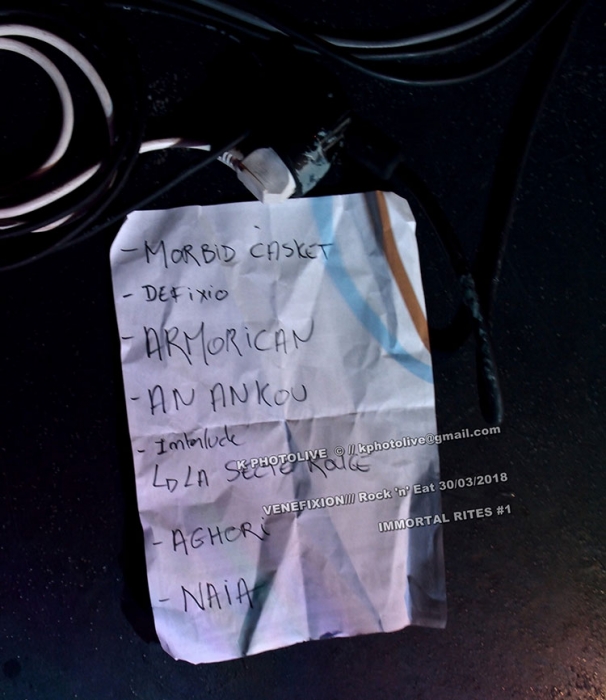 - MORBID CASKET
- DEFixio
- ARMORiCAN
- AN ANKOU
- Interlude
↳ LA SECTE ROUGE
K PHOTOLIVE © // kphotolive@gmail.com
VENEFIXION/// Rock 'n' Eat 30/03/2018
IMMORTAL RITES #1
- AGHORi
- NAiA